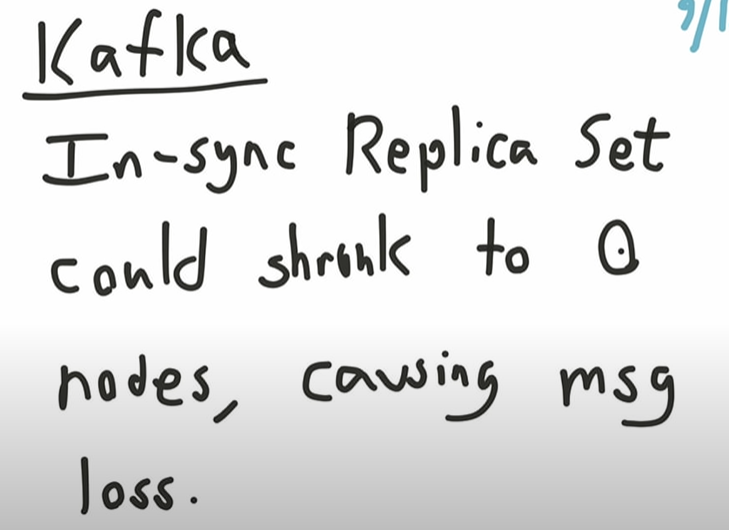 Kafka
In-sync Replica Set
could shrink to 0
nodes, causing msg
loss.